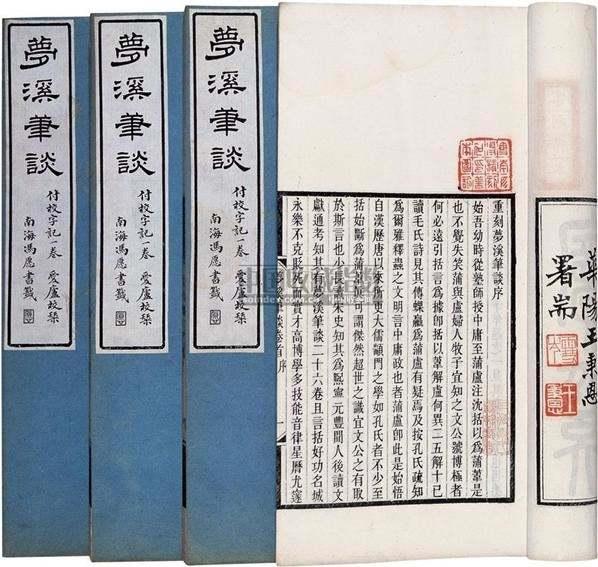 華陽王秉恩
署耑
重刻夢溪筆談序
始吾幼時從塾師授中庸至蒲盧注沈括以爲蒲葦是
也不覺失笑蒲與盧婦人牧子宜知之文公號博極者
何必遠引括言爲據卽括以葦解盧何異二五解十已
讀毛氏詩見其傳蜾蠃爲蒲盧有疑焉及按孔氏疏知
爲爾雅釋蟲之文明言中庸政也者蒲盧卽此是始悟
自漢歷唐以來所更大儒顓門之學如孔氏者不少
括始斷爲蒲葦亦可謂傑然超世之識宜文公之有取
於斯言也少長索宋史知其爲熙寧元豐間人後讀文
獻通考知其有夢溪筆談二十六卷且言括好功名城
永樂不克貶死而實才高博學多技能音律星曆尤邃
夢溪筆談
付校字記一卷 愛廬校栞
南海馮愿書籤
夢溪筆談
付校字記一卷 愛廬校栞
南海馮愿書籤
夢溪筆談
付校字記一卷 愛廬校栞
南海馮愿書籤